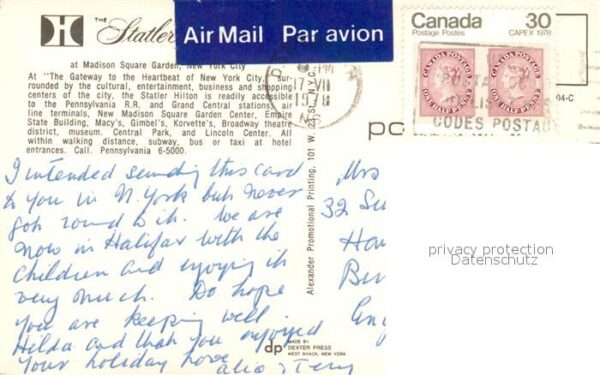 THE
Statler
at Madison Square Garden, New York City
At "The Gateway to the Heartbeat of New York City," sur-
rounded by the cultural, entertainment, business and shopping
centers of the city, the Statler Hilton is readily accessible
to the Pennsylvania R.R. and Grand Central stations, air
line terminals, New Madison Square Garden Center, Empire
State Building, Macy's, Gimbel's, Korvette's, Broadway theatre
district, museum, Central Park, and Lincoln Center. All
within walking distance, subway, bus or taxi at hotel
entrances. Call. Pennsylvania 6-5000.
Air Mail Par avion
PM
17 VII
1978
N.S.
Canada 30
Postage Postes CAPEX 1978
CANADA POSTAGE
ONE HALF PENNY
CANADA POSTAGE
ONE HALF PENNY
CODES POSTA
04-C
po
I intended sending this card
to you in N. York but never
got round to it. We are
now in Halifax with the
children and enjoying it
very much. Do hope
you are keeping well
Hilda and that you enjoyed
your holiday
Alexander Promotional Printing, 101 W. 23 St., N.Y.C.
Mrs
32
Eng
privacy protection
Datenschutz
dp
MADE BY
DEXTER PRESS
WEST NYACK, NEW YORK